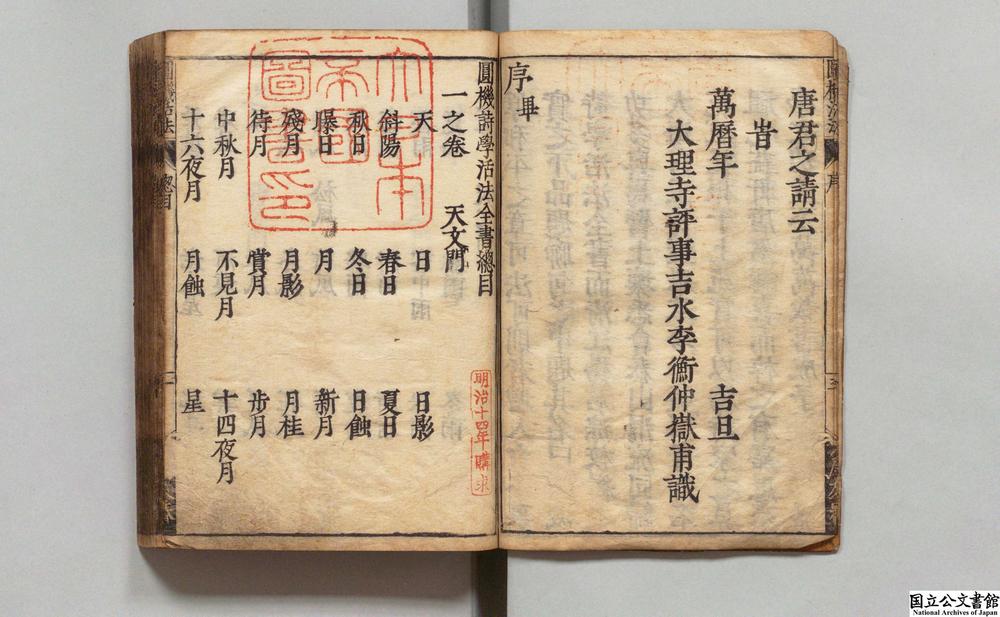 唐君之請云
旹
萬曆年 吉旦
大理寺評事吉水李衡仲嶽甫識
序畢
圓機詩學活法全書總目
一之卷 天文門
天 日 日影
斜陽 春日 夏日
秋日 冬日 日蝕
曝日 月 新月
殘月 月影 月桂
待月 賞月 步月
中秋月 不見月 十四夜月
十六夜月 月蝕 星
大日本
帝國
圖書印
明治十四年購求
国立公文書館
National Archives of Japan